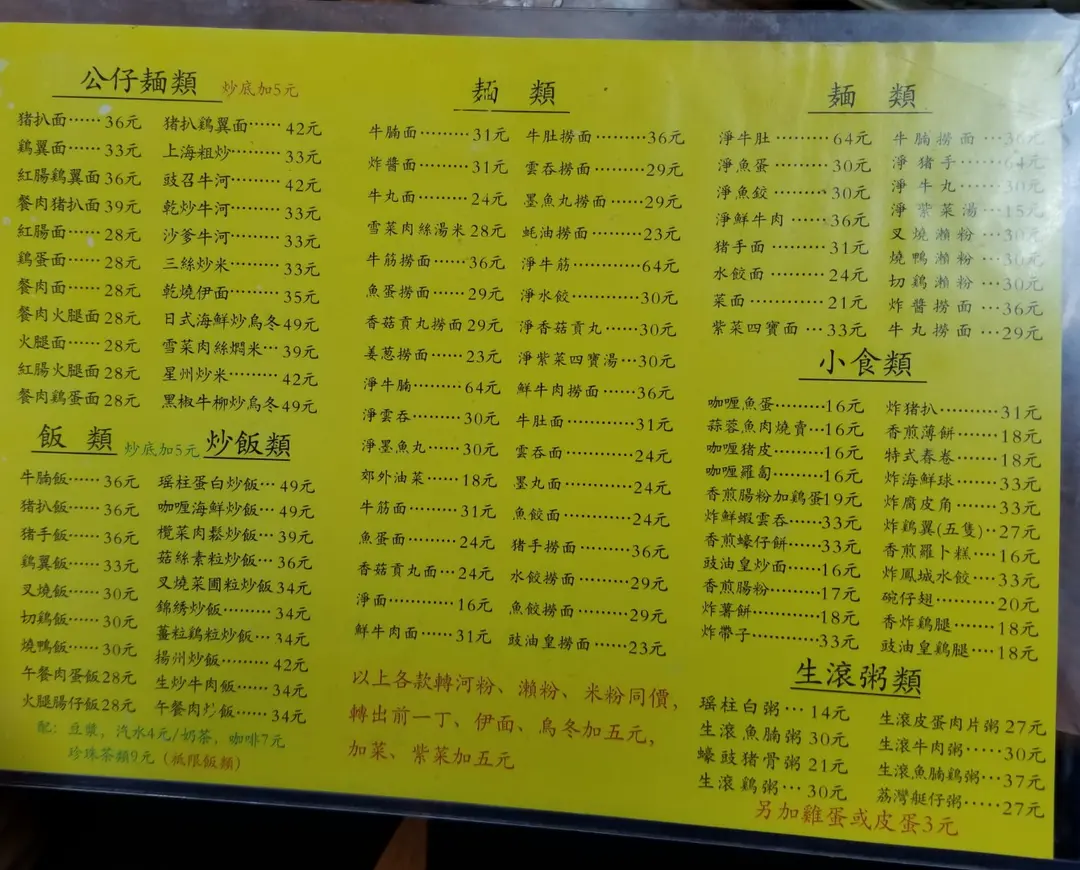 公仔麵類 炒底加5元
猪扒面……36元
鷄翼面……33元
紅腸鷄翼面36元
餐肉猪扒面39元
紅腸面……28元
鷄蛋面……28元
餐肉面……28元
餐肉火腿面28元
火腿面……28元
紅腸火腿面28元
餐肉鷄蛋面28元
猪扒鷄翼面……42元
上海粗炒………33元
豉召牛河………42元
乾炒牛河………33元
沙爹牛河………33元
三絲炒米………33元
乾燒伊面………35元
日式海鮮炒烏冬49元
雪菜肉絲燜米…39元
星州炒米………42元
黑椒牛柳炒烏冬49元
飯 類 炒底加5元 炒飯類
牛腩飯……36元
猪扒飯……36元
猪手飯……36元
鷄翼飯……33元
叉燒飯……30元
切鷄飯……30元
燒鴨飯……30元
午餐肉蛋飯28元
火腿腸仔飯28元
瑶柱蛋白炒飯…49元
咖喱海鮮炒飯…49元
欖菜肉鬆炒飯…39元
菇絲素粒炒飯…36元
叉燒菜圃粒炒飯34元
錦綉炒飯………34元
薑粒鷄粒炒飯…34元
揚州炒飯………42元
生炒牛肉飯……34元
午餐肉炒飯……34元
配：豆漿，汽水4元/奶茶，咖啡7元
珍珠茶類9元（衹限飯類）
麵 類
牛腩面………31元
炸醬面………31元
牛丸面………24元
雪菜肉絲湯米28元
牛筋撈面……36元
魚蛋撈面……29元
香菇貢丸撈面29元
姜葱撈面……23元
淨牛腩………64元
淨雲吞………30元
淨墨魚丸……30元
郊外油菜……18元
牛筋面………31元
魚蛋面………24元
香菇貢丸面…24元
淨面…………16元
鮮牛肉面……31元
牛肚撈面………36元
雲吞撈面………29元
墨魚丸撈面……29元
蚝油撈面………23元
淨牛筋…………64元
淨水餃…………30元
淨香菇貢丸……30元
淨紫菜四寶湯…30元
鮮牛肉撈面……36元
牛肚面…………31元
雲吞面…………24元
墨丸面…………24元
魚餃面…………24元
猪手撈面………36元
水餃撈面………29元
魚餃撈面………29元
豉油皇撈面……23元
以上各款轉河粉、瀨粉、米粉同價，
轉出前一丁、伊面、烏冬加五元，
加菜、紫菜加五元
麵 類
淨牛肚………64元
淨魚蛋………30元
淨魚餃………30元
淨鮮牛肉……36元
猪手面………31元
水餃面………24元
菜面…………21元
紫菜四寶面…33元
牛腩撈面…36元
淨猪手……64元
淨牛丸……30元
淨紫菜湯…15元
叉燒瀨粉…30元
燒鴨瀨粉…30元
切鷄瀨粉…30元
炸醬撈面…36元
牛丸撈面…29元
小食類
咖喱魚蛋………16元
蒜蓉魚肉燒賣…16元
咖喱猪皮………16元
咖喱羅蔔………16元
香煎腸粉加鷄蛋19元
炸鮮蝦雲吞……33元
香煎蠔仔餅……33元
豉油皇炒面……16元
香煎腸粉………17元
炸薯餅…………18元
炸帶子…………33元
炸猪扒…………31元
香煎薄餅………18元
特式春卷………18元
炸海鮮球………33元
炸腐皮角………33元
炸鷄翼(五隻)…27元
香煎羅卜糕……16元
炸鳳城水餃……33元
碗仔翅…………20元
香炸鷄腿………18元
豉油皇鷄腿……18元
生滾粥類
瑶柱白粥…14元
生滾魚腩粥30元
蠔豉猪骨粥21元
生滾鷄粥…30元
生滾皮蛋肉片粥27元
生滾牛肉粥……30元
生滾魚腩鷄粥…37元
荔灣艇仔粥……27元
另加雞蛋或皮蛋3元